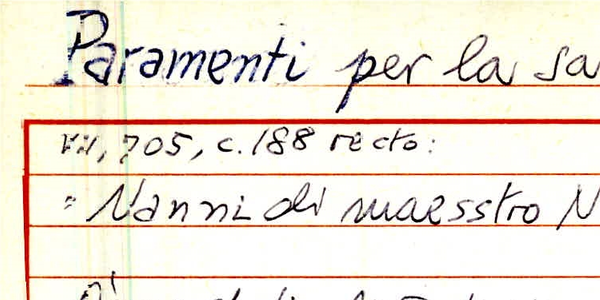 Paramenti per la sa
VII, 705, c. 188 recto:
" Nanni di maesstro N